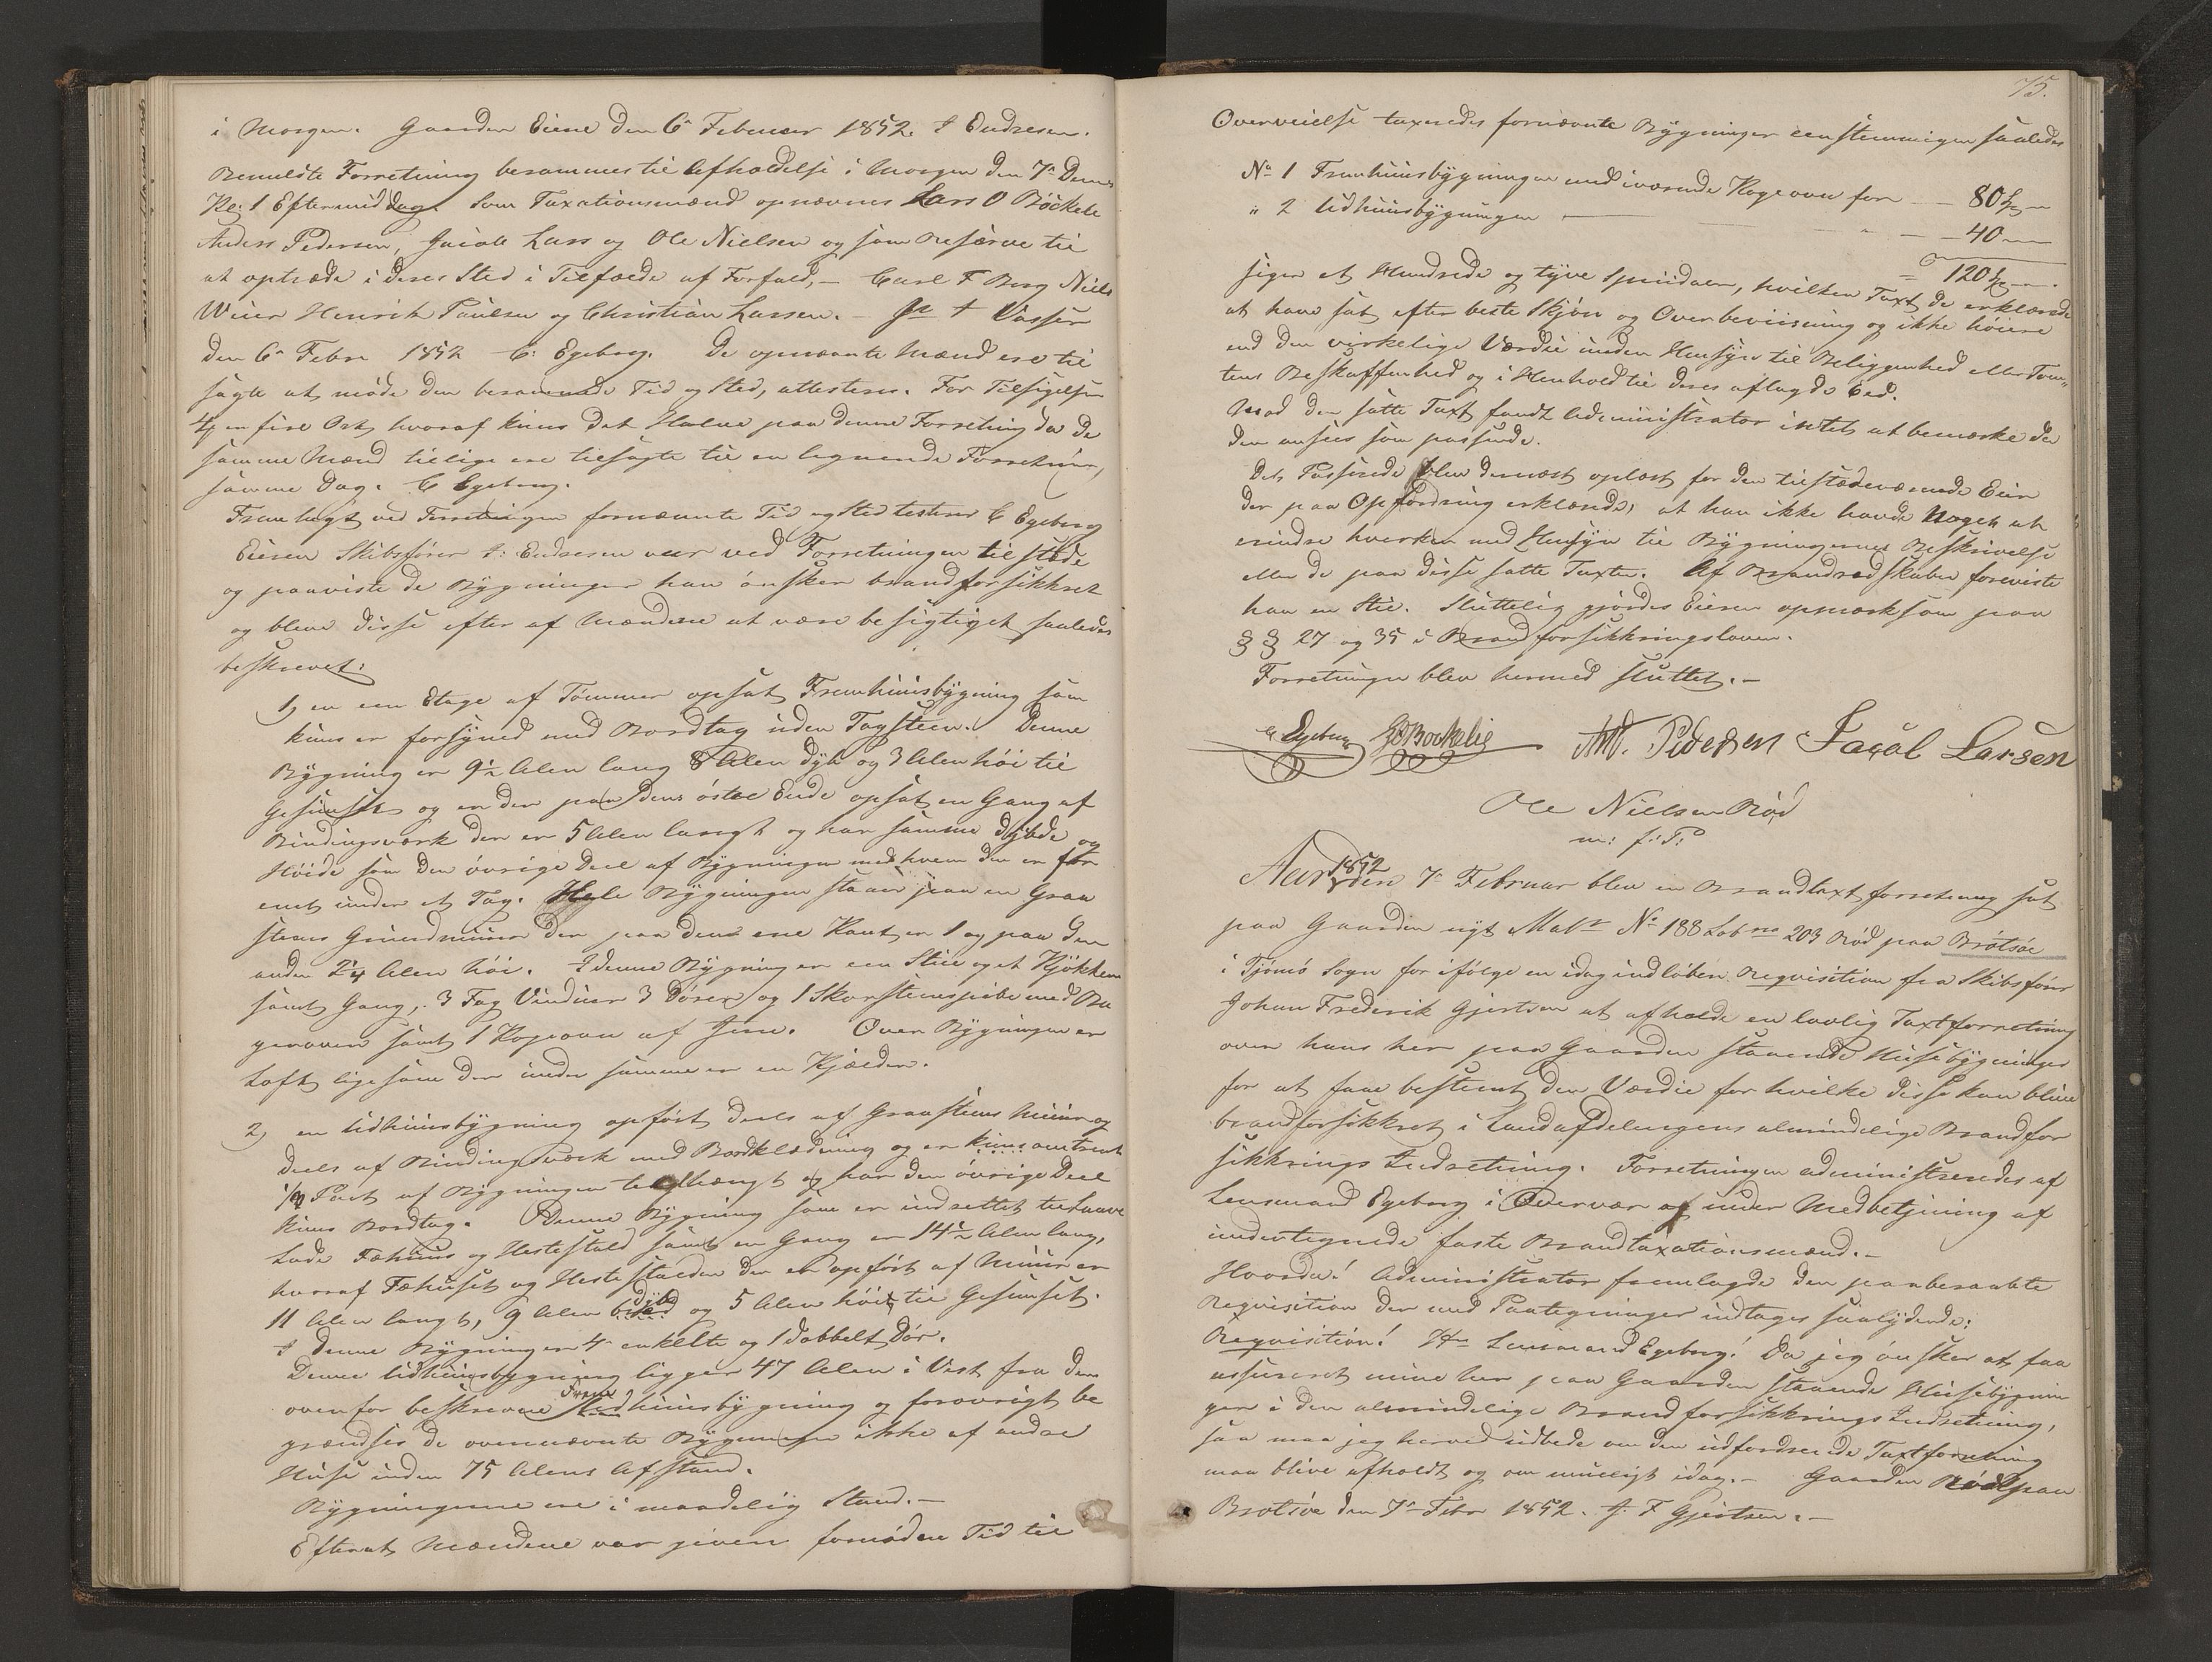 i Morgen. Gaarden Eiene den 6te Februar 1852. I Endresen.
Bemeldte Forretning berammes til Afholdelse i Morgen den 7de Dennes
Kl: 1 Eftermiddag. Som Taxationsmænd opnævnes Lars O Böckele
Anders Pedersen, Jacob Lars og Ole Nielsen og som Reserve til
at optræde i deres Sted i Tilfælde af Forfald, – Carl F Berg Niels
Weier Henrik Paulsen og Christian Larsen. –
den 6te Febr 1852 C: Egeberg. De opnævnte Mænd ere til
sagte at møde den berammede Tid og Sted, attesteres. For Tilsigelsen
4 en fire Ort, hvoraf kuns det Halve paa denne Forretning da de
samme Mænd tillige ere tilsagte til en lignende Forretning,
samme Dag. C Egeberg.
Fremlagt ved Forretningen fornævnte Tid og Sted testerer C Egeberg
Eieren Skibsfører I: Endresen var ved Forretningen tilstede
og paaviste de Bygninger han ønsker brandforsikkret
og bleve disse efter af Mændene at være besigtiget saaledes
beskrevet:
1, en een Etage af Tømmer opsat Fremhuusbygning som
kuns er forsyned med Bordtag uden Tagsteen. Denne
Bygning er 9½ Alen lang 8 Alen dyb og 3 Alen høi til
Gesimset og er der paa dens østre Ende opsat en Gang af
Bindingsværk der er 5 Alen langt og har samme Dybde og
Høide som den øvrige Deel af Bygningen med hvem den er for
enet under et Tag. Hele Bygningen staaer paa en Graa
steens Grundmuur der paa dens ene Kant er 1 og paa den
anden 2¼ Alen høi. I denne Bygning er een Stue og et Kjøkken
samt Gang, 3 Fag Vinduer 3 Dører og 1 Skorsteenspibe med Ba
gerovn samt 1 Kogeovn af Jern. Over Bygningen er
Loft, ligesom der under samme er en Kjælder.
2, en Udhuusbygning opført deels af Graasteens Muur og
deels af Bindingsværk med Bordklædning og er kuns omtrent
Part af Bygningen teglhængt og har den øvrige Deel
kuns Bordtag. Denne Bygning som er indrettet til Laave
Lade Fæhuus og Hestestald samt en Gang er 14½ Alen lang,
hvoraf Fæhuset og Hestestalden der er opført af Muur er
11 Alen langt, 9 Alen bred dyb og 5 Alen høit til Gesimset.
I denne Bygning er 4 enkelte og 1 dobbelt Dør.
Denne Udhuusbygning ligger 47 Alen i Vest fra den
ovenfor beskrevne Frem huusbygning og forøvrigt be
grændses de ovennævnte Bygninger ikke af andre
Huse inden 75 Alens Afstand.
Bygningerne ere i maadelig Stand. –
Efterat Mændene var given fornøden Tid til
75.
Overveielse taxeredes fornævnte Bygninger eenstemmigen saaledes
No 1 Fremhuusbygningen med iværende Kogeovn for – 80
" 2 Udhuusbygningen – 40
= 120
siger et Hundrede og tyve Speciedaler, hvilken Taxt de erklærede
at have sat efter beste Skjøn og Overbeviisning og ikke høiere
end den virkelige Værdie uden Hensyn til Beliggenhed eller Tom-
tens Beskaffenhed og i Henhold til deres aflagde Eed.
Mod den satte Taxt fandt Administrator intet at bemærke da
den ansees som passende.
Det Passerede blev dernæst oplæst for den tilstedeværende Eier
der paa Opfordring erklærede, at han ikke havde Noget at
erindre hverken med Hensyn til Bygningernes Beskrivelse
eller de paa disse satte Taxter. Af Brandredskaber foreviste
han en Stie. Sluttelig gjordes Eieren opmærksom paa
§ § 27 og 35 i Brandforsikkringsloven.
Forretningen blev hermed sluttet. –
C Egeberg Bockelie And. Pedersen Jacob Larsen
Ole Nielsen Rød
m: f: P:
Aar 1852 den 7de Februar blev en Brandtaxtforretning sat
paa Gaarden nyt Matr No 188 Løb no 203 Rød paa Brøtsøe
i Tjømø Sogn for ifølge en idag indløben Reqvisition fra Skibsfører
Johan Frederik Gjertsen at afholde en lovlig Taxtforretning
over hans her paa Gaarden staaende Huusebygninger
for at faae bestemt den Værdie for hvilke disse kan blive
brandforsikkret i Landafdelingens almindelige Brandfor
sikkrings Indretning. Forretningen administreredes af
Lensmand Egeberg i Overvær af under Medbetjening af
undertegnede faste Brandtaxationsmænd. –
Hvorda! Administrator fremlagde den paaberaabte
Reqvisition der med Paategninger indtages saalydende:
Reqvisition! Hr Lensmand Egeberg! Da jeg ønsker at faa
assureret mine her paa Gaarden staaende Huusebygnin
ger i den almindelige Brandforsikkrings Indretning,
saa maa jeg herved udbede om den udfordrende Taxtforretning
maa blive afholdt og om mueligt idag. – Gaarden Rød paa
Brøtsøe den 7de Febr 1852. J. F Gjertsen. –